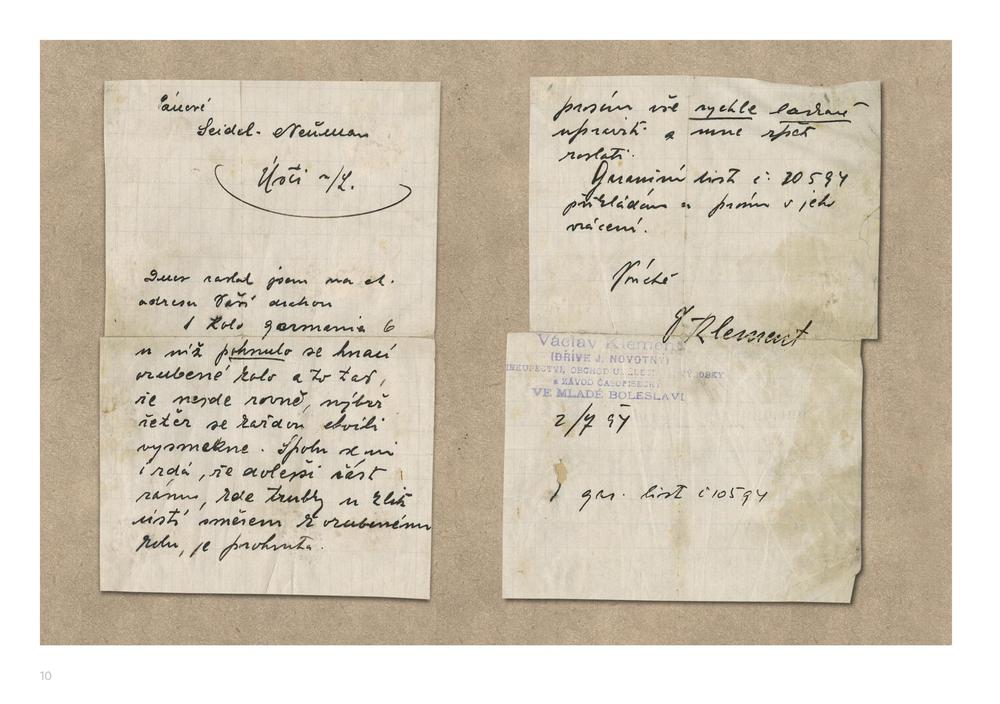 Pánové
Seidel - Neŭman
Ústí n/L.
Dnes zaslal jsem na ct.
adresu Vaší drahou
1 kolo germania 6
u niž pohnulo se hnací
ozubené kolo a to tak,
že nejde rovně, nýbrž
řetěz se každou chvíli
vysmekne. Spolu se mi
i zdá, že dolejší část
rámu, kde trubky u klik
ústí směrem k ozubenému
kolu, je prohnuta.
prosím vše rychle laskavě
upravit a mně zpět
zaslati.
Garanční list č. 10594
přikládám a prosím o jeho
vrácení.
V úctě
Klement
Václav Klement
(DŘÍVE J. NOVOTNÝ)
KNIHKUPECTVÍ, OBCHOD
a ZÁVOD ČASOPISECKÝ
VE MLADÉ BOLESLAVI
2/7 94
1 gar. list č 10594
10